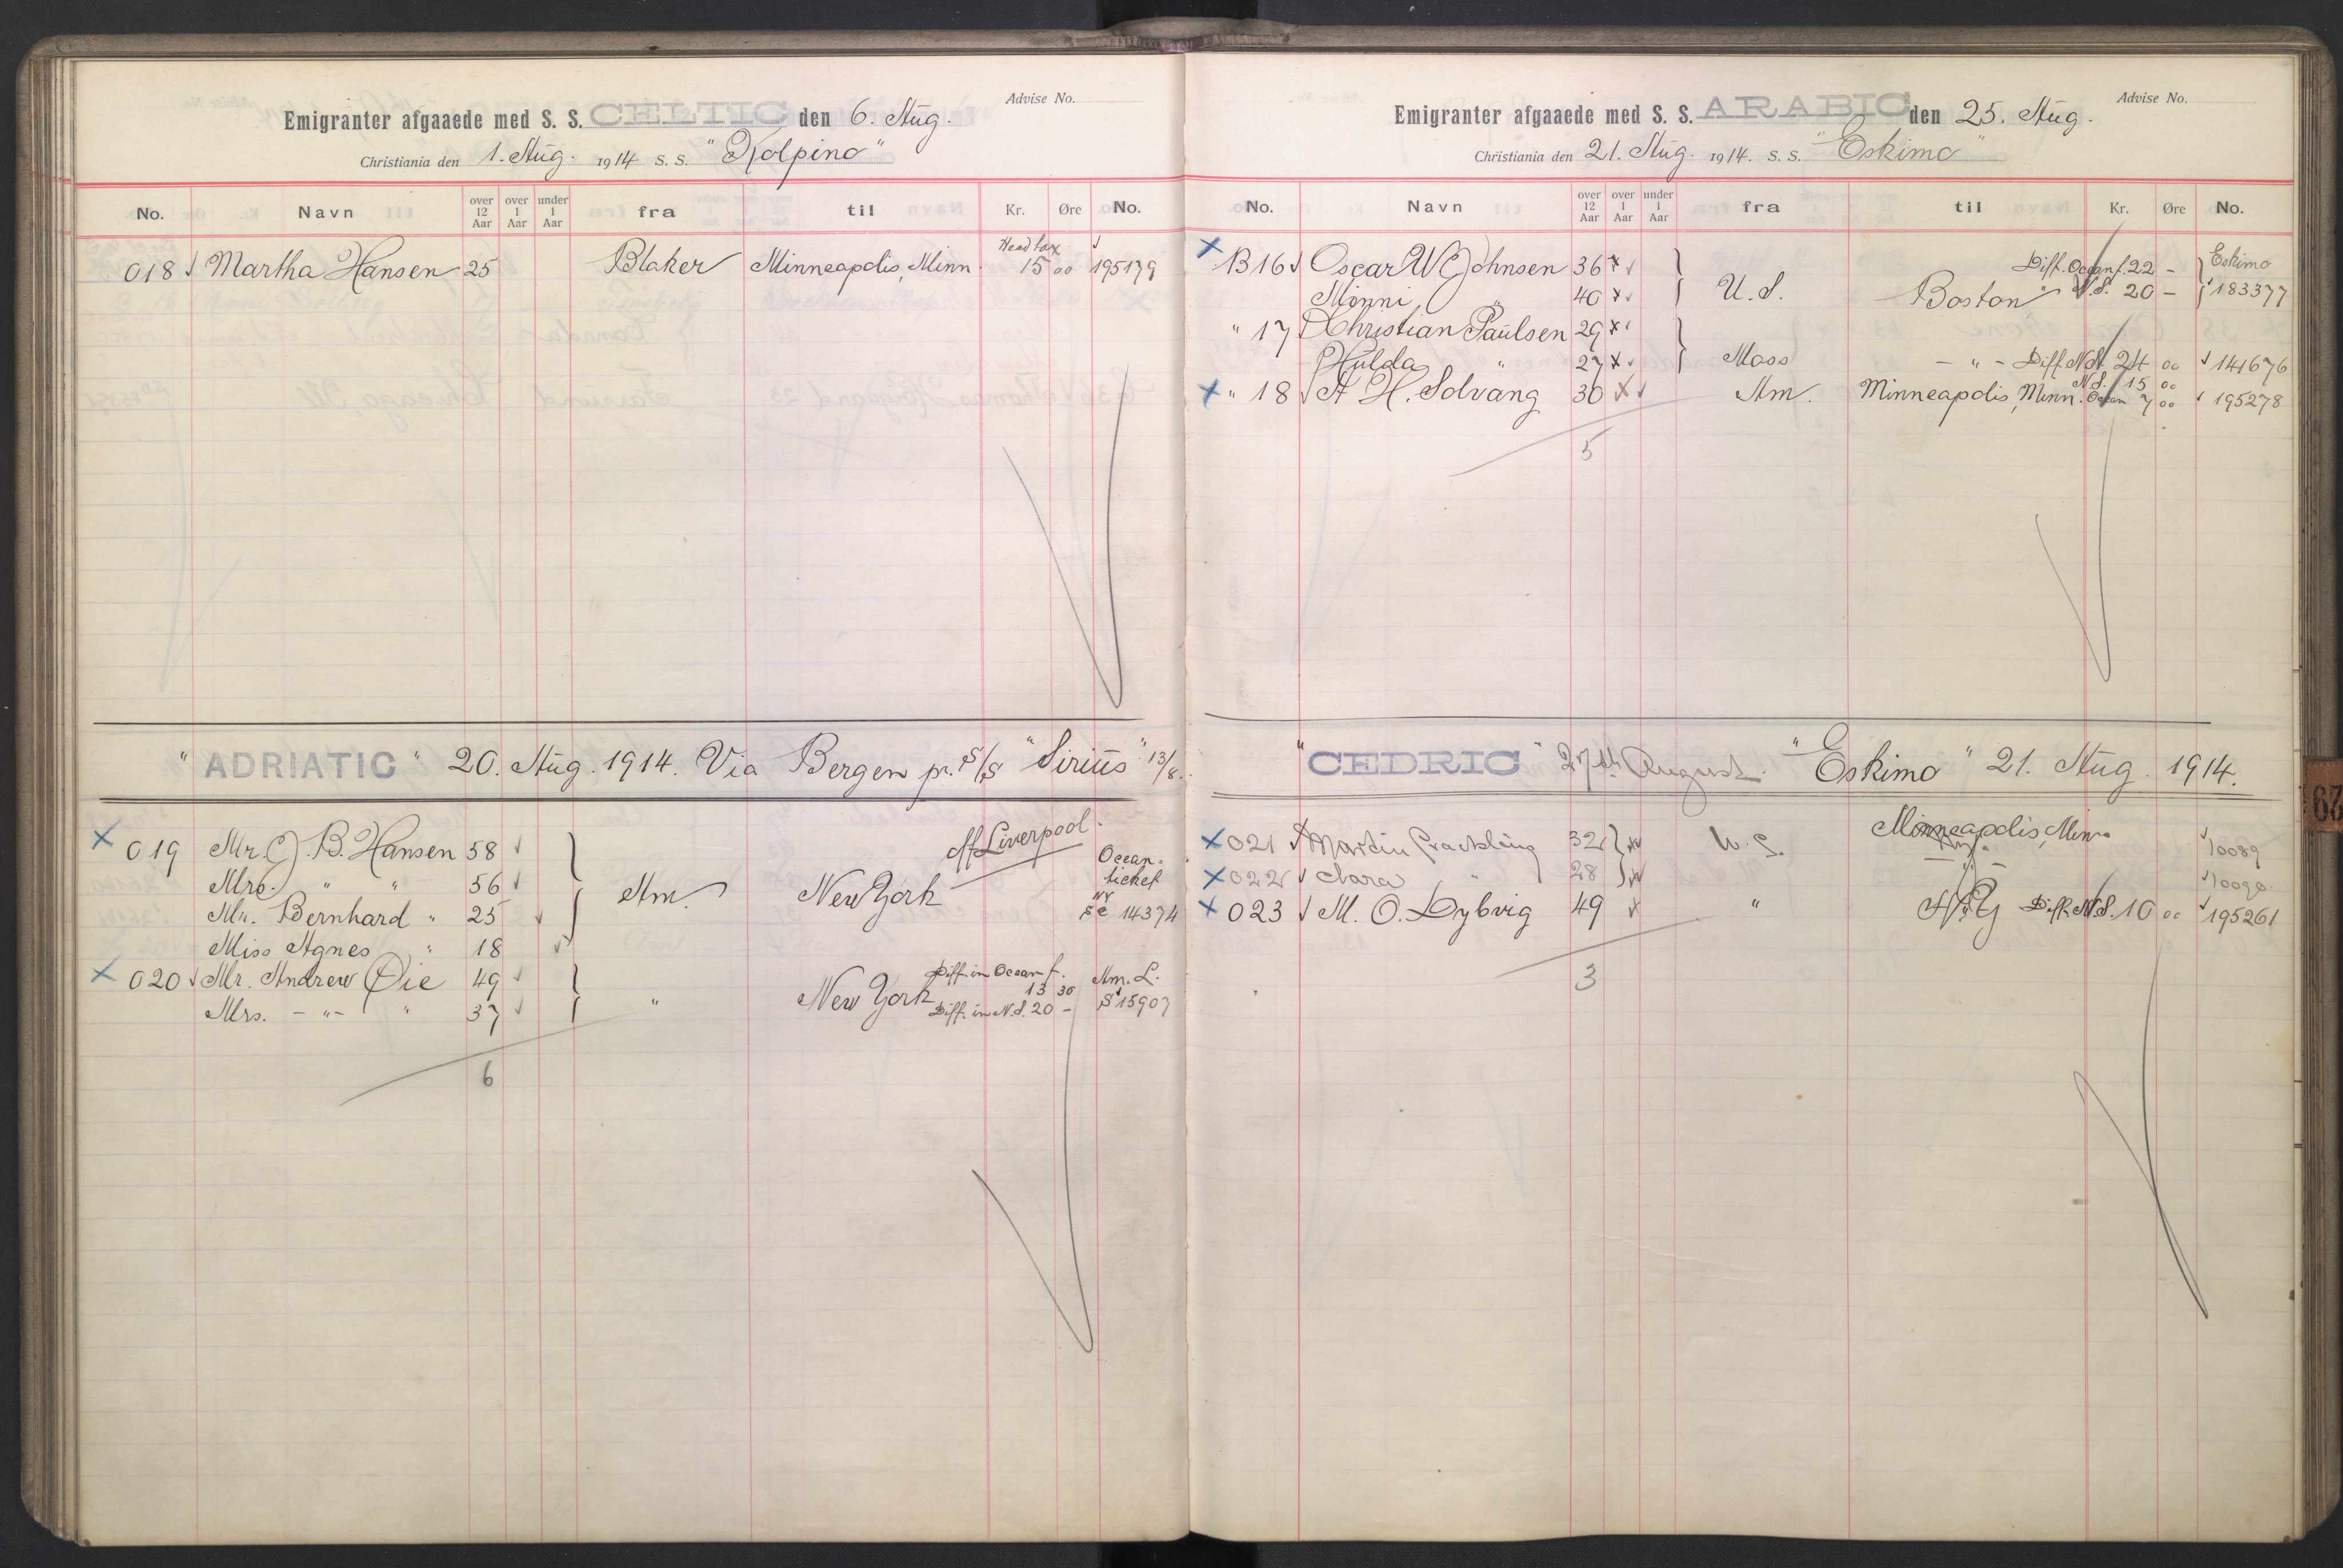 Advise No.
Emigranter afgaaede med S. S. CELTIC den 6. Aug.
Christiania den 1. Aug. 1914 S. S. "Kolpino"
No. Navn over 12 Aar over 1 Aar under 1 Aar fra til Kr. Øre No.
Head tax
018 Martha Hansen 25 Blaker Minneapolis, Minn. 15 00 195179
"ADRIATIC" 20. Aug. 1914. Via Bergen pr. S/S "Sirius" 13/8.
off Liverpool.
019 Mr. J. B. Hansen 58 Ocean-
Mrs. " " 56 Am. New York ticket
Mr. Bernhard " 25 14374
Miss Agnes " 18
020 Mr. Andrew Øie 49 Diff. in Ocean f. 13 30 Am. L.
Mrs. - " - " 37 " New York Diff. in N.S. 20 - S 15907
6
Advise No.
Emigranter afgaaede med S. S. ARABIC den 25. Aug.
Christiania den 21. Aug. 1914. S. S. "Eskimo"
No. Navn over 12 Aar over 1 Aar under 1 Aar fra til Kr. Øre No.
B16 Oscar W. Johnsen 36 Diff. Ocean f. 22 - Eskimo
Minni " 40 U.S. Boston " N.S. 20 - 183377
" 17 Christian Paulsen 29
Hulda " 27 Moss - " - Diff. N.S. 24 00 141676
N.S. 15 00
" 18 A. H. Solvang 30 Am. Minneapolis, Minn. Ocean 7 00 195278
5
"CEDRIC" 27th August. "Eskimo" 21. Aug. 1914.
Minneapolis, Minn
021 Martin 32 U.S. 10089
022 Clara " 28 10090
023 M. O. Dybvig 49 " N.Y. Diff. N.S. 10 00 195261
3